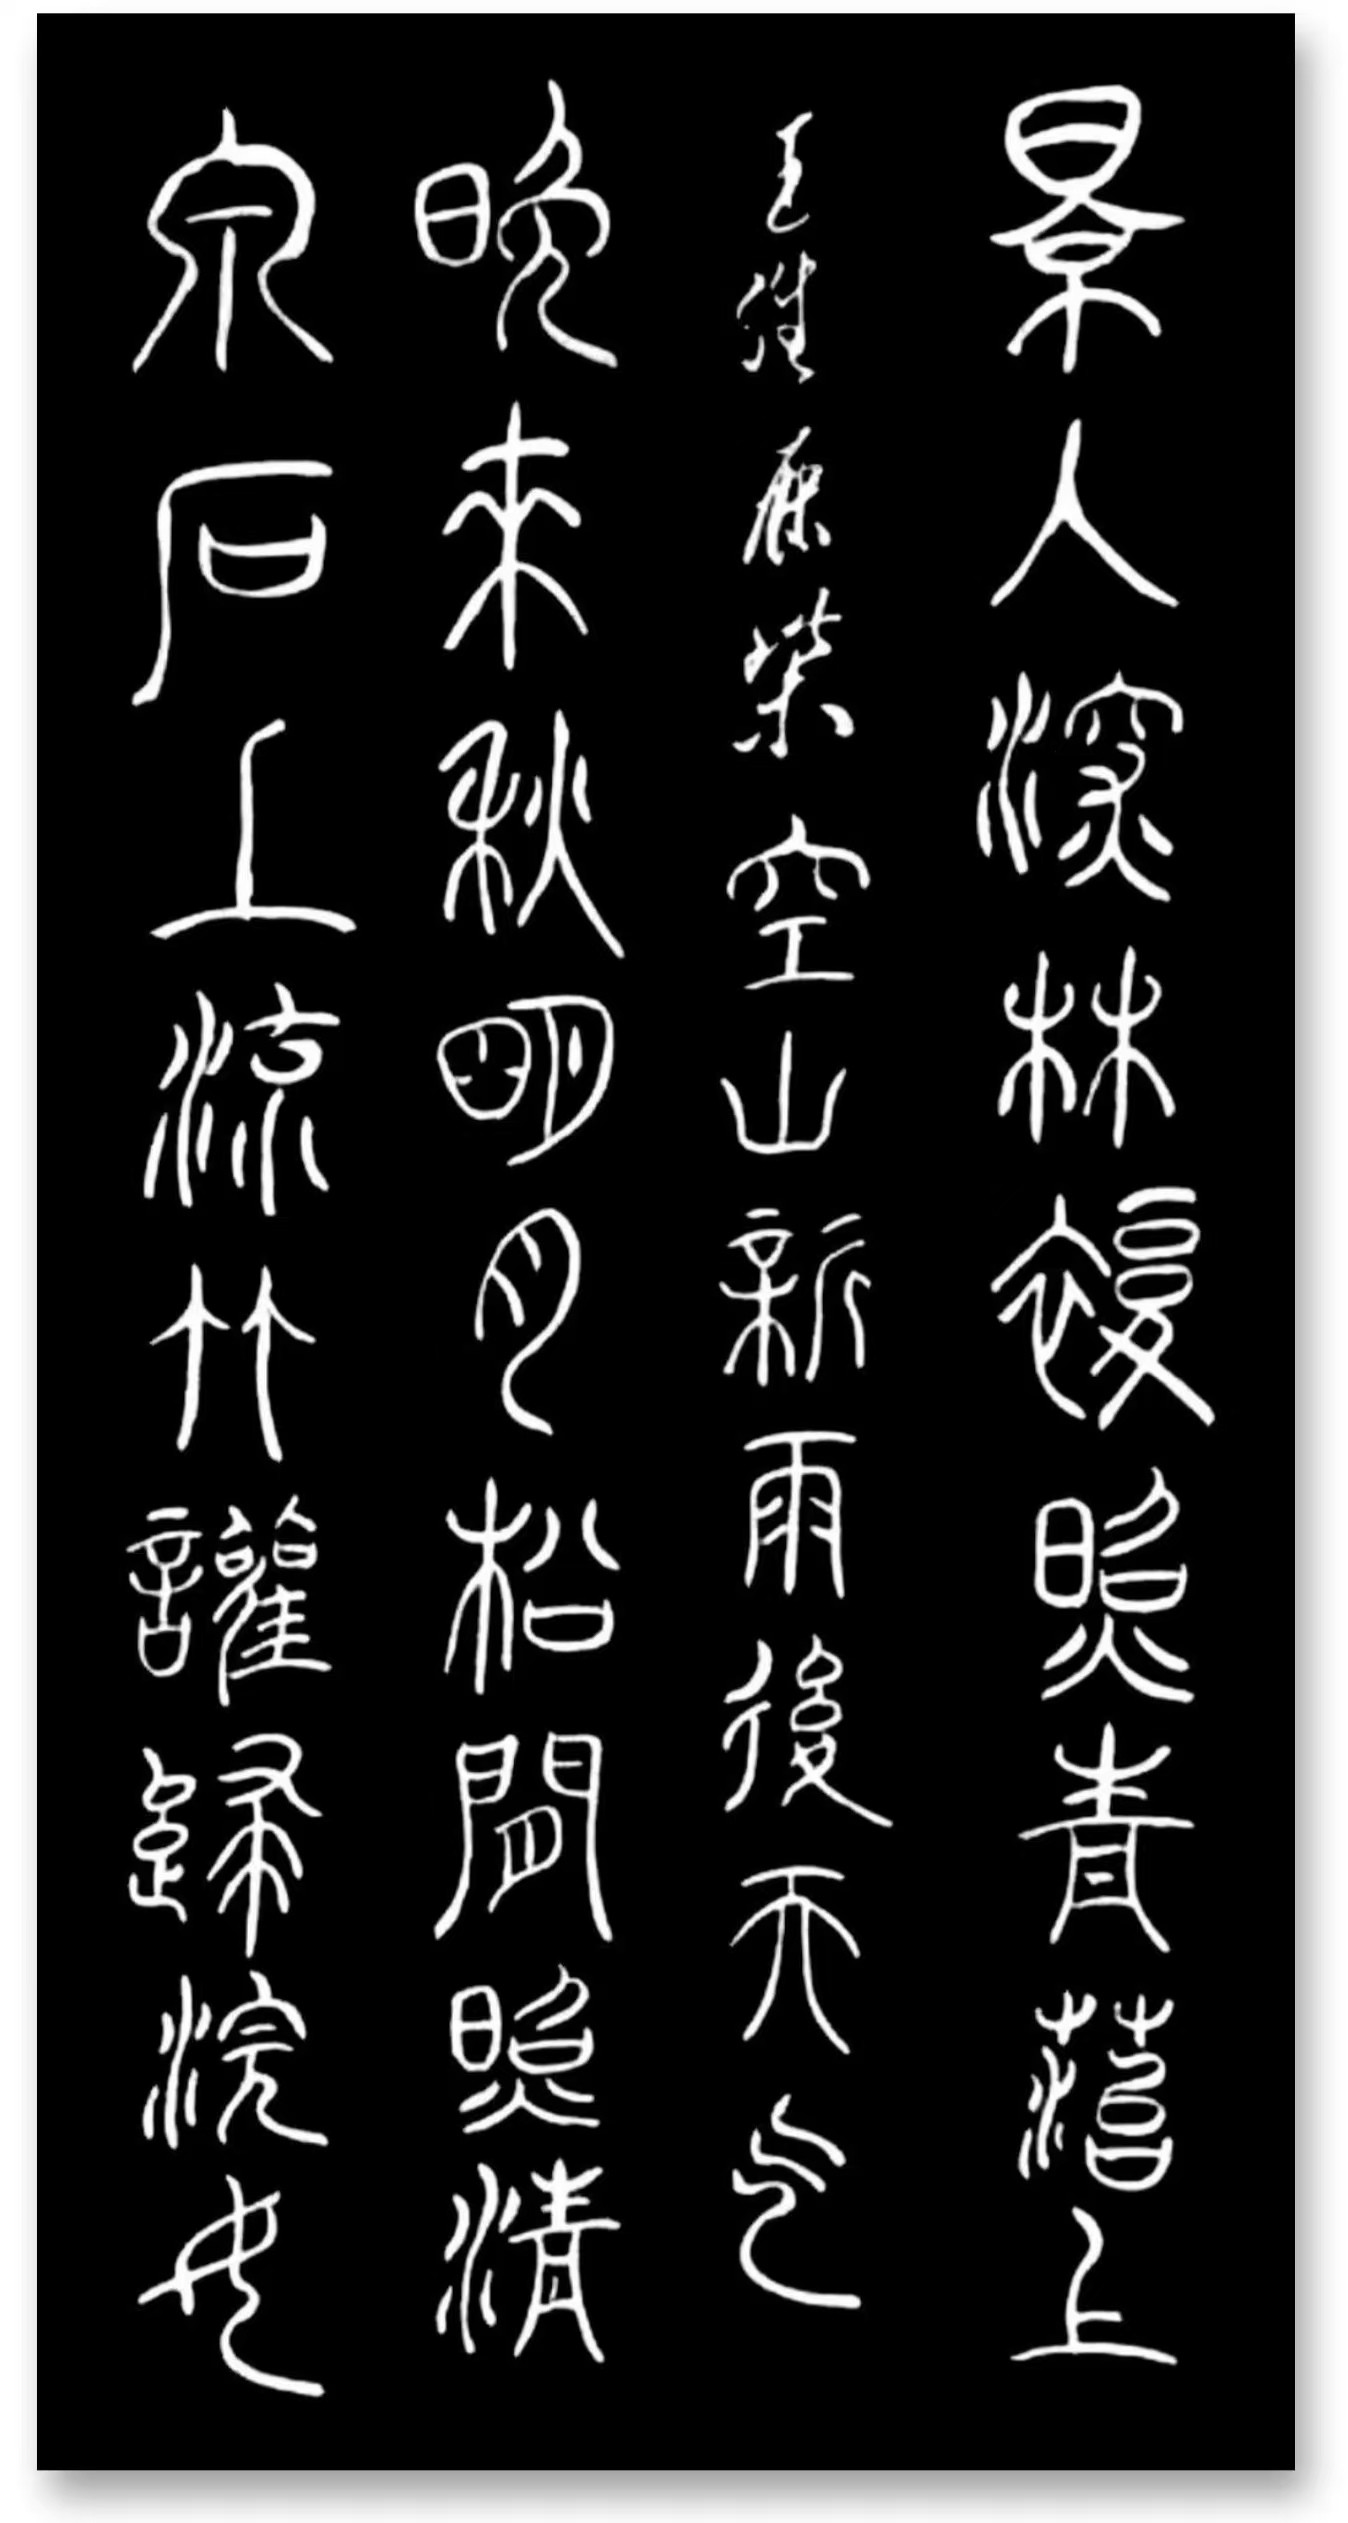 景人深林複照青菭上
王維鹿柴空山新雨後天气
晚來秋明月松間照清
泉石上流竹讙歸浣女